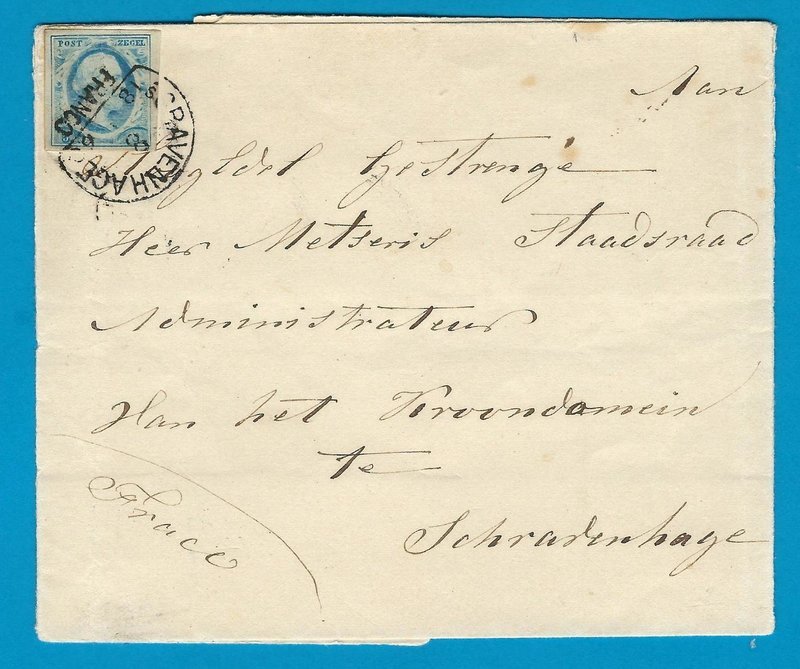 POST ZEGEL
FRANCO
GRAVENHAGE
Aan
Gestrenge
Heer Metseris Staadsraad
Administrateur
Han het Kroondomein
te
Schravenhage
Fraco